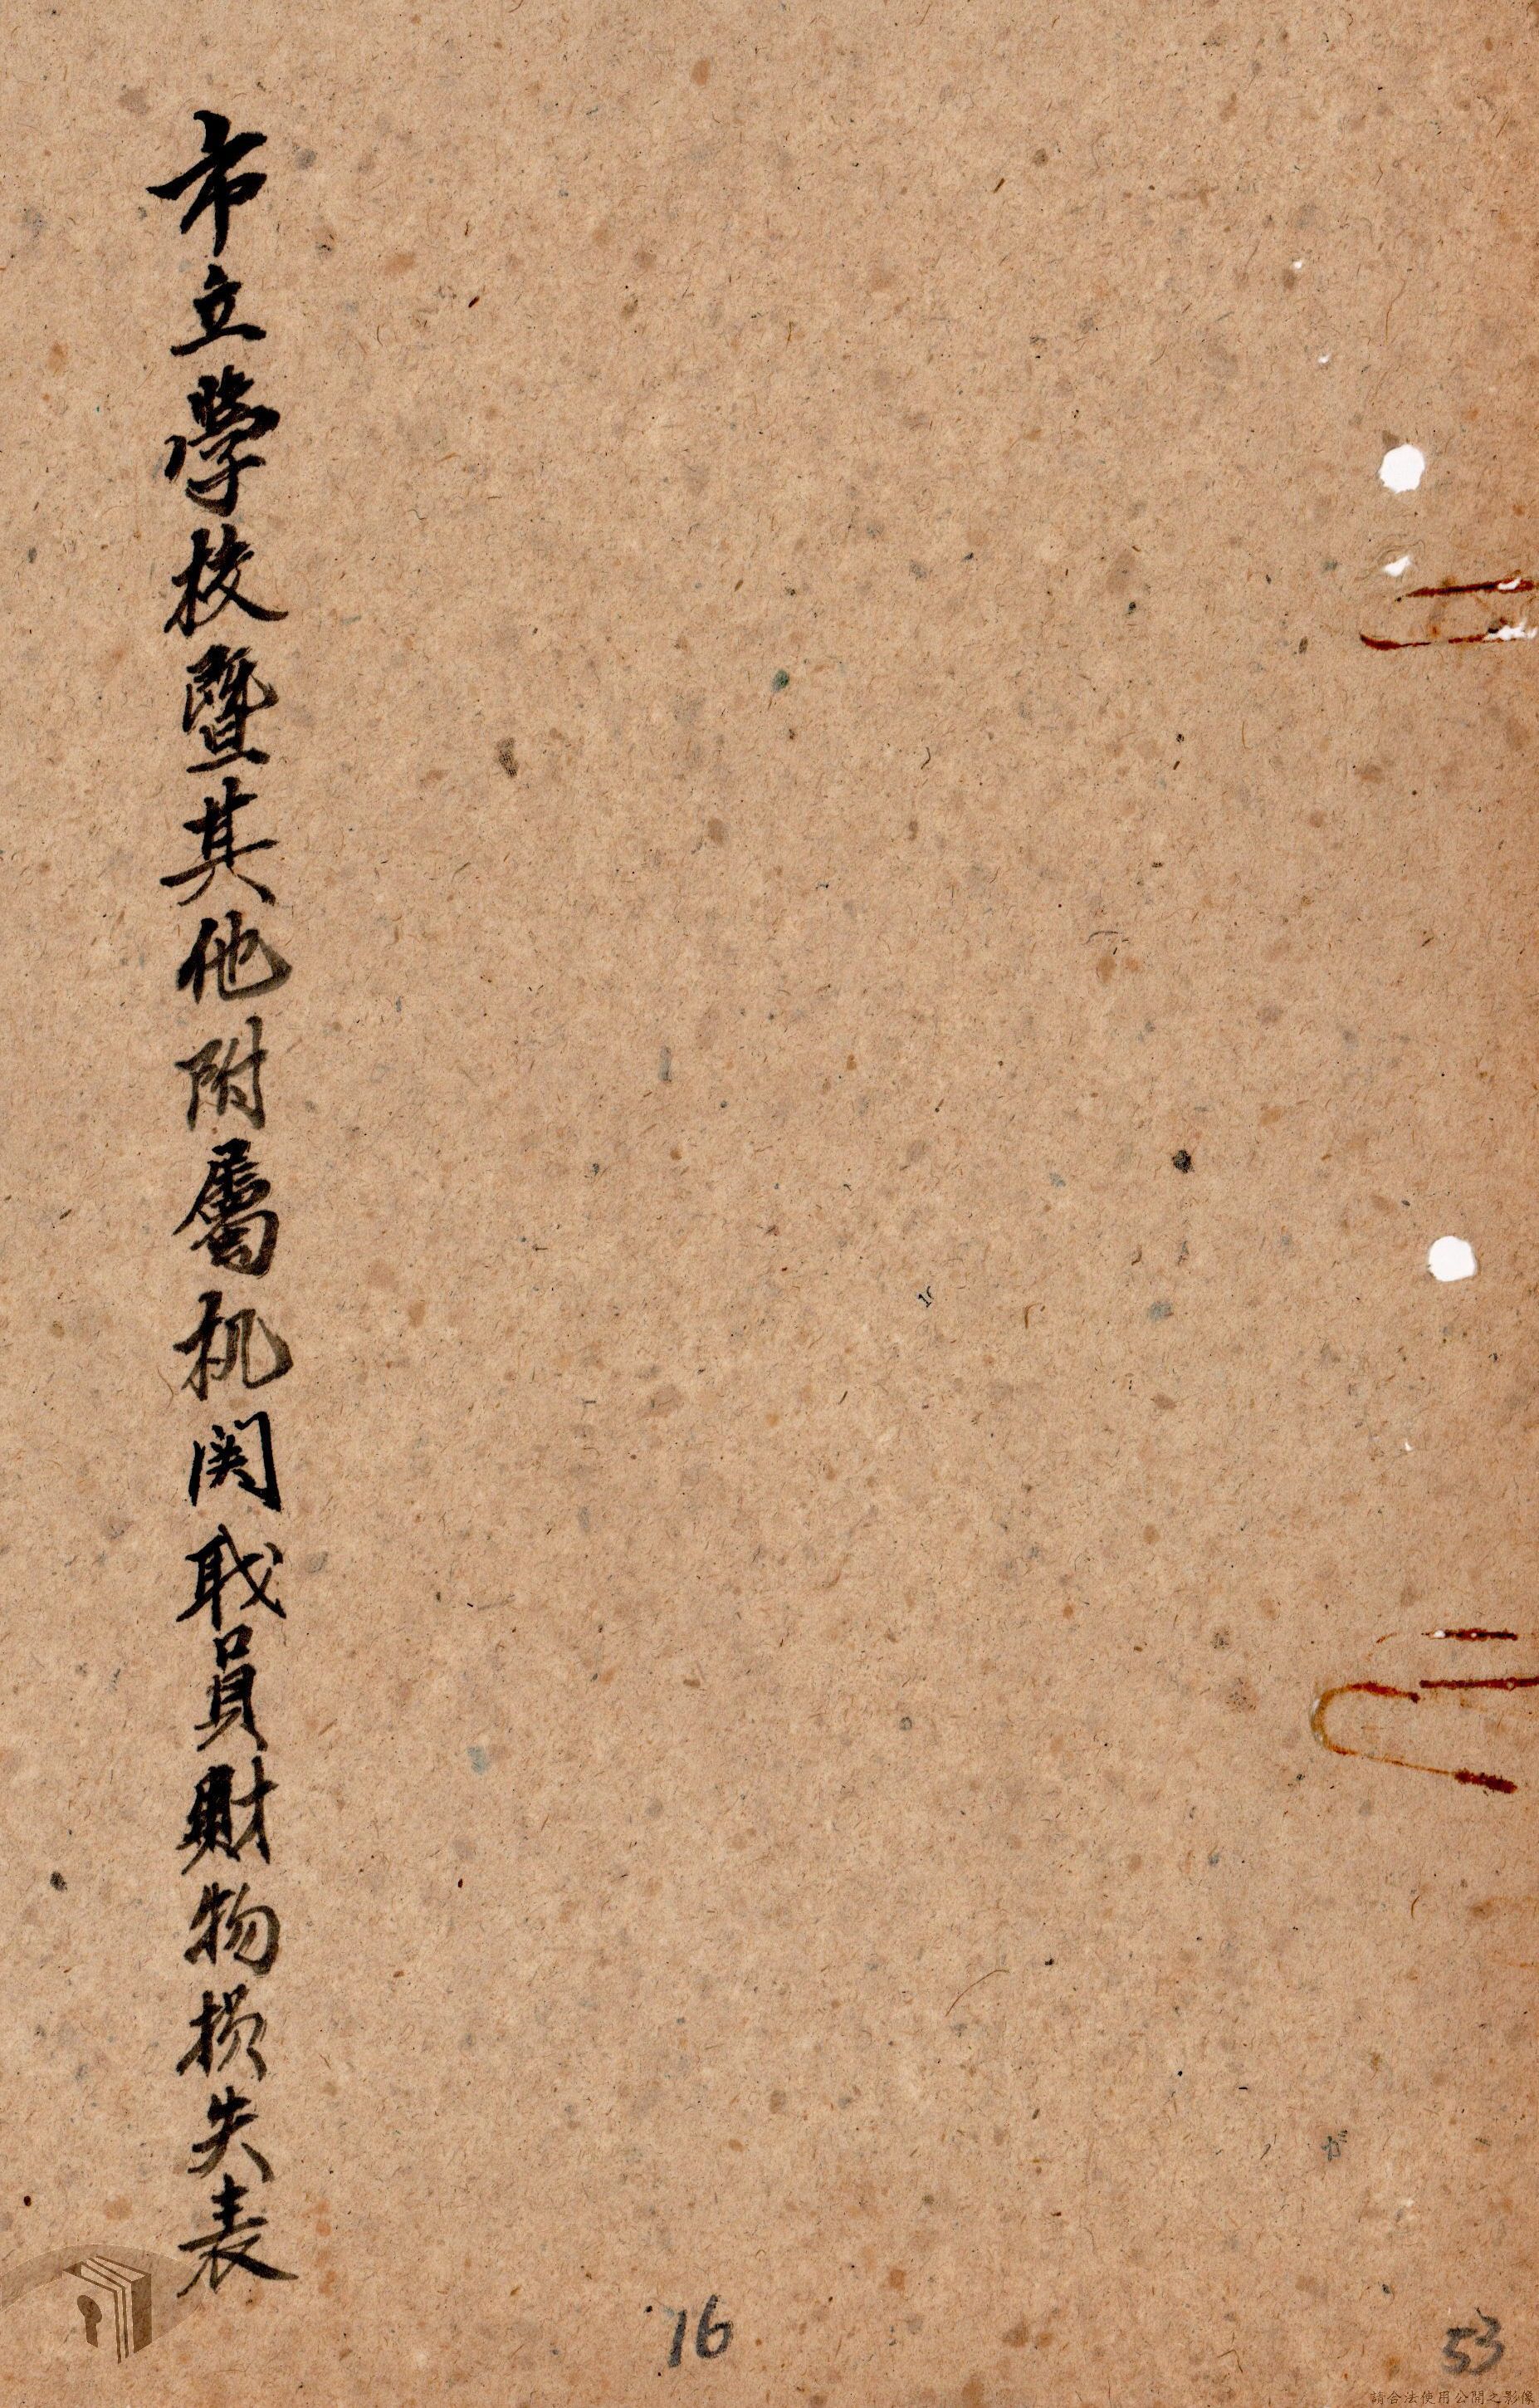 市立學校暨其他附屬机関耺員財物損失表
16
53
請合法使用公開之影像